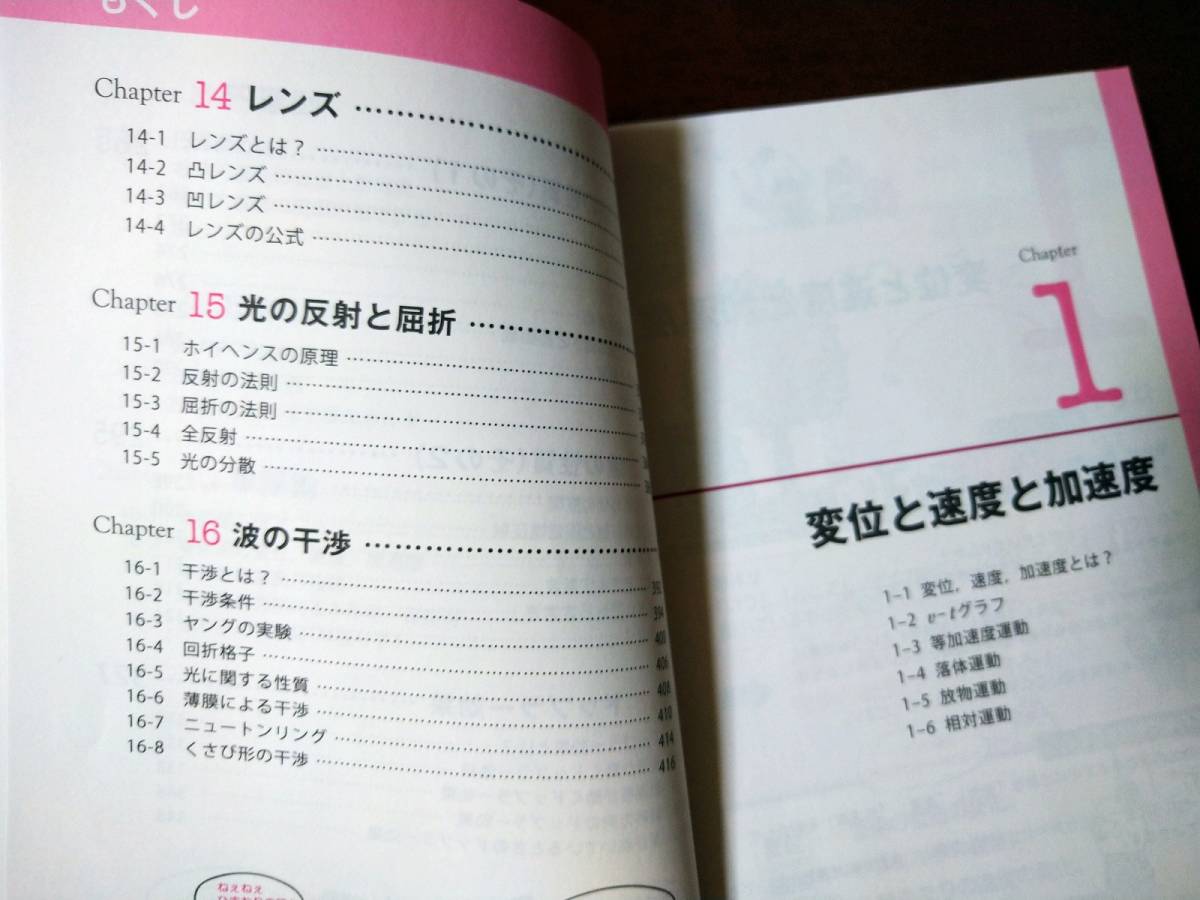 もくじ
Chapter 14 レンズ
14-1 レンズとは？
14-2 凸レンズ
14-3 凹レンズ
14-4 レンズの公式
Chapter 15 光の反射と屈折
15-1 ホイヘンスの原理
15-2 反射の法則
15-3 屈折の法則
15-4 全反射
15-5 光の分散
Chapter 16 波の干渉
16-1 干渉とは？ 392
16-2 干渉条件 394
16-3 ヤングの実験 400
16-4 回折格子 406
16-5 光に関する性質 408
16-6 薄膜による干渉 410
16-7 ニュートンリング 414
16-8 くさび形の干渉 416
ねぇねぇ
Chapter
1
変位と速度と加速度
1-1 変位，速度，加速度とは？
1-2 v-tグラフ
1-3 等加速度運動
1-4 落体運動
1-5 放物運動
1-6 相対運動